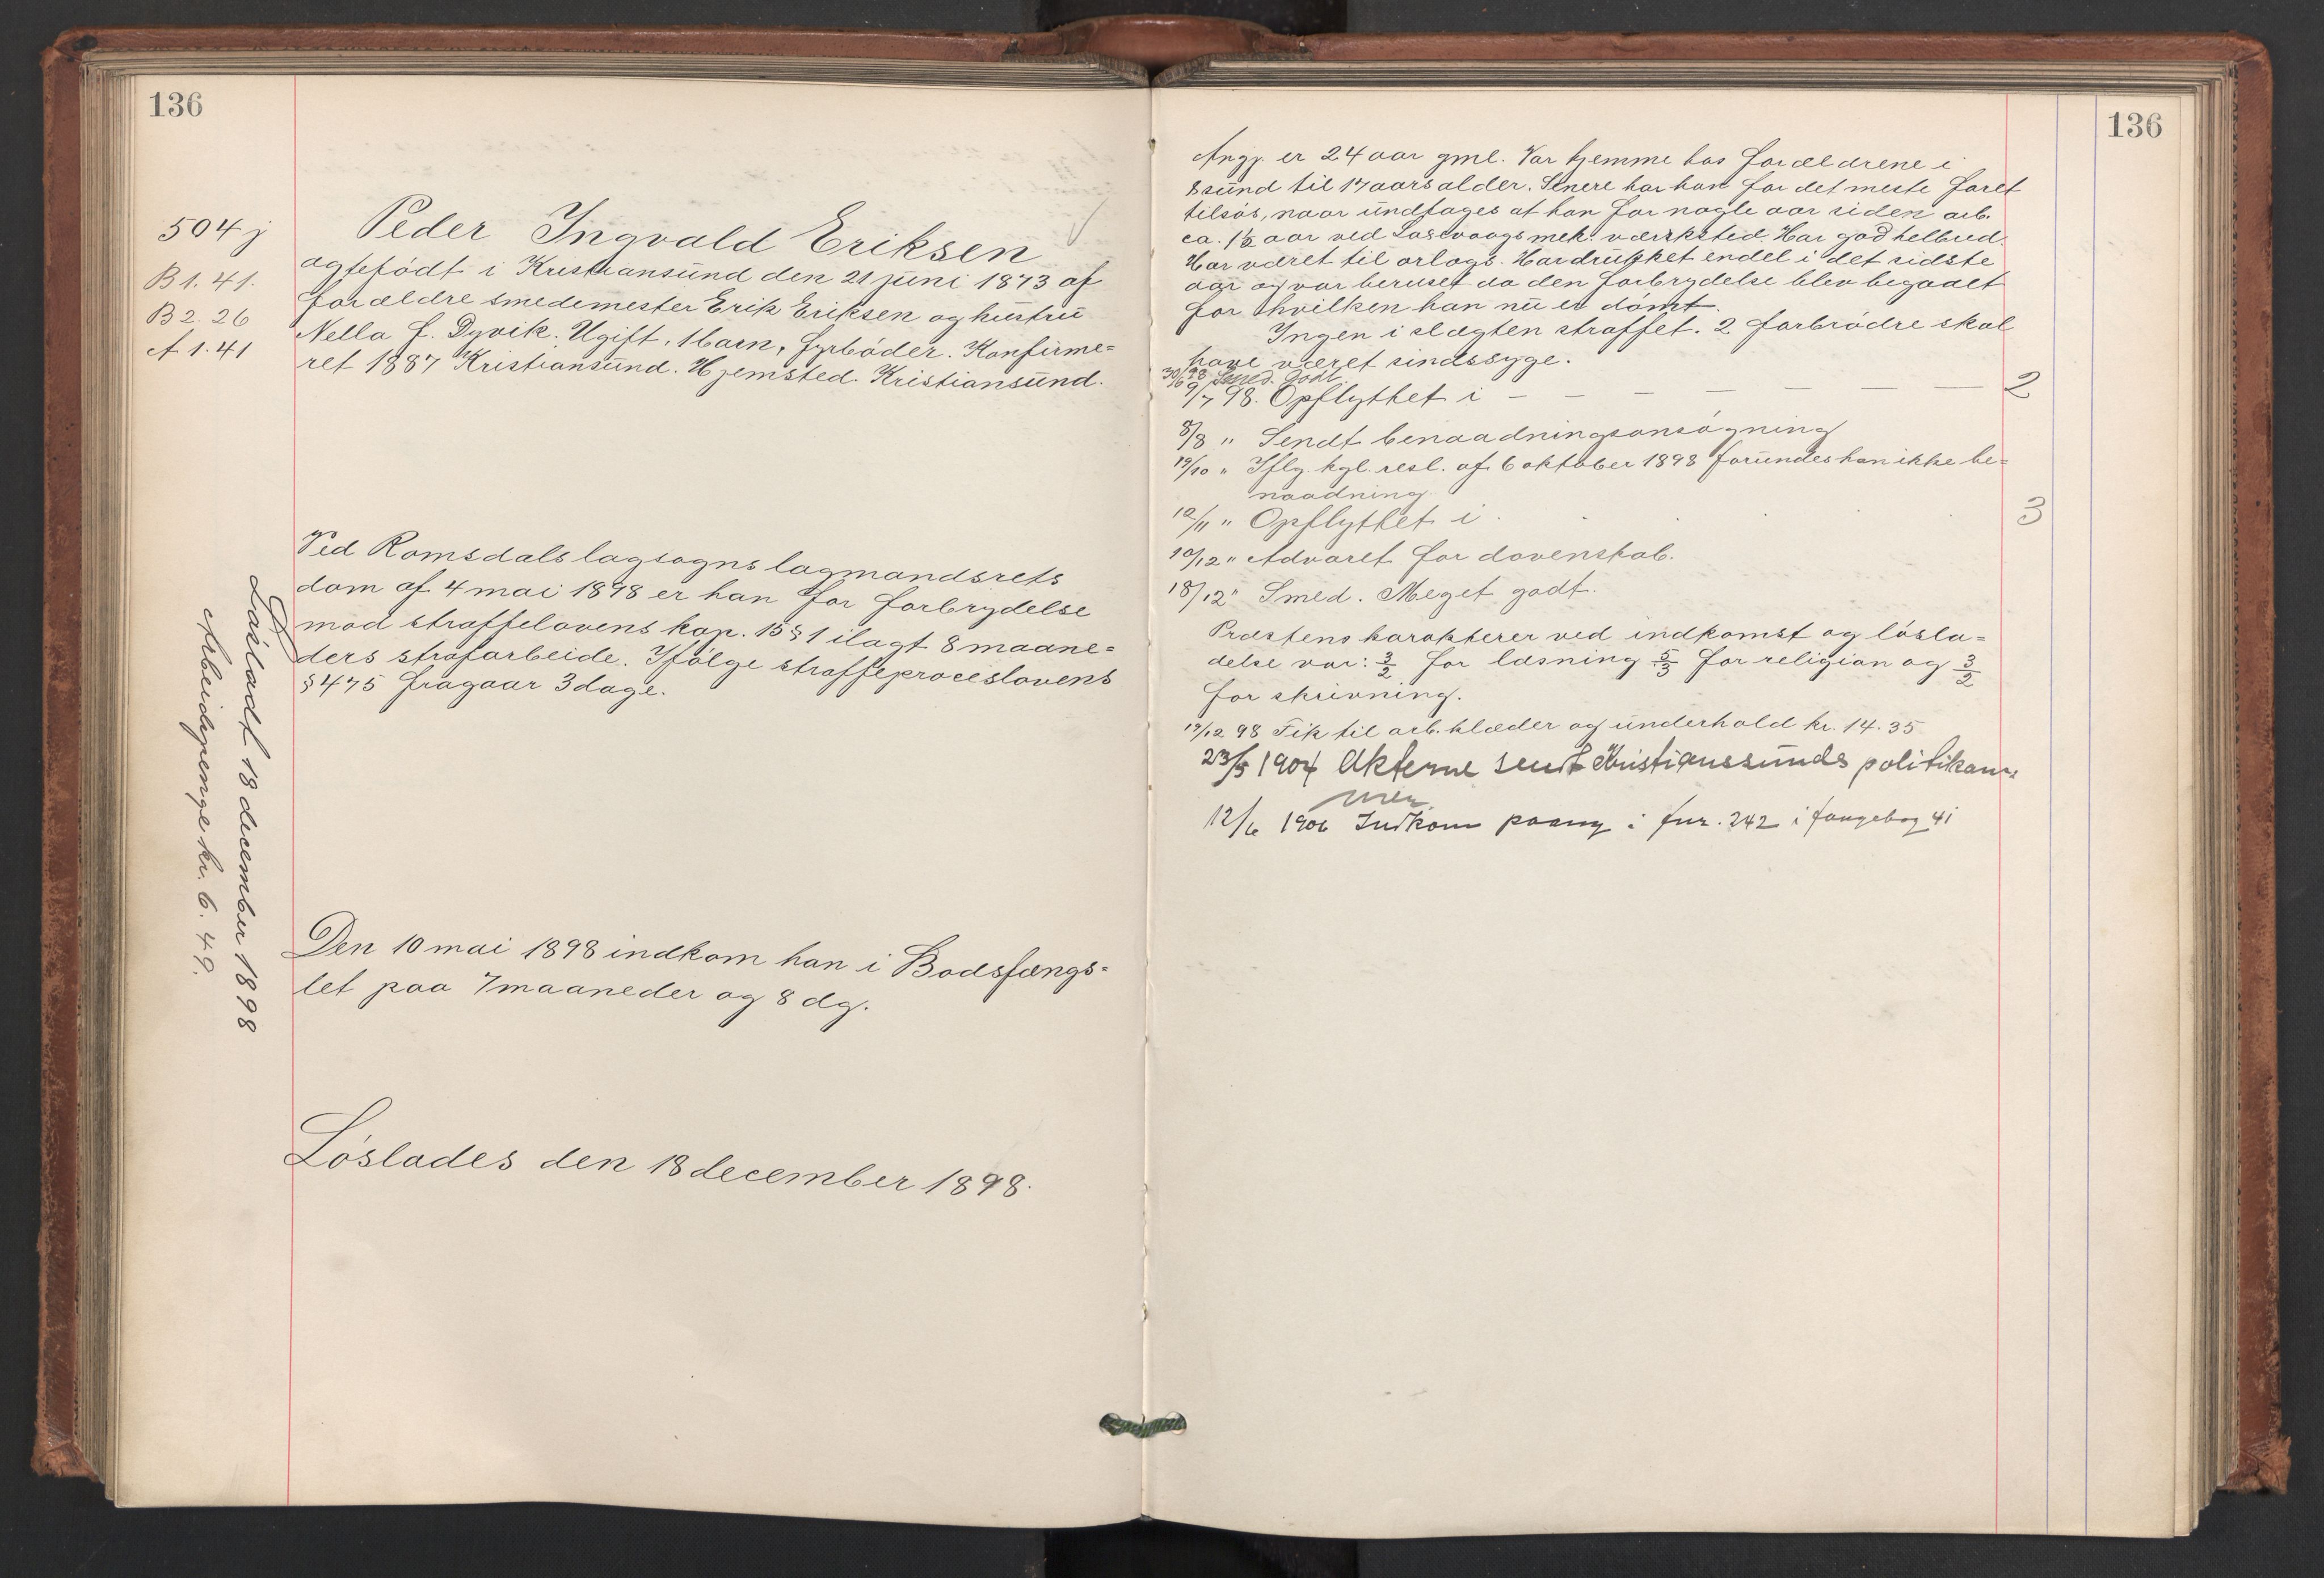 136
504 j
B 1. 41.
B 2. 26
A 1. 41
Peder Ingvald Eriksen
ægtefödt i Kristiansund den 21 juni 1873 af
forældre smedemester Erik Eriksen og hustru
Nella f. Dyvik. Ugift, 1 barn, fyrböder. Konfirme=
ret 1887 Kristiansund. Hjemsted. Kristiansund.
Ved Romsdals lagsogns lagmandsrets
dom af 4 mai 1898 er han for forbrydelse
mod straffelovens kap. 15 § 1 ilagt 8 maane=
ders strafarbeide. Ifölge straffeproceslovens
§ 475 fragaar 3 dage.
Lösladt 18 december 1898
Arbeidspenge kr. 6. 49.
Den 10 mai 1898 indkom han i Bodsfængs=
let paa 7 maaneder og 8 dg.
Löslades den 18 december 1898.
136
Angj. er 24 aar gml. Var hjemme hos forældrene i
Ksund til 17 aars alder. Senere har han for det meste faret
tilsös, naar undtages at han for nogle aar siden arb.
ca. 1½ aar ved Laxevaags mek. værksted. Har god helbred.
Har været til orlogs. Har drukket endel i det sidste
aar og var beruset da den forbrydelse blev begaaet
for hvilken han nu er dömt.
Ingen i slægten straffet. 2 farbrödre skal
have været sindssyge.
30/6 98 Smed. Godt.
9/7 98. Opflyttet i – – – – – – 2
8/8 " Sendt benaadningsansögning
19/10 " Iflg. kgl. resl. af 6 oktober 1898 forundes han ikke be=
naadning.
12/11 " Opflyttet i . . . . 3
10/12 " Advaret for dovenskab.
18/12 " Smed. Meget godt.
Præstens karakterer ved indkomst og lösla=
delse var: 3/2 for læsning 5/3 for religion og 3/2
for skrivning.
19/12 98 Fik til arb. klæder og underhold kr. 14. 35
23/5 1904 Akterne sendt Kristianssunds politikam=
mer.
12/6 1906 Indkom paany i fnr. 242 i fangebog 41